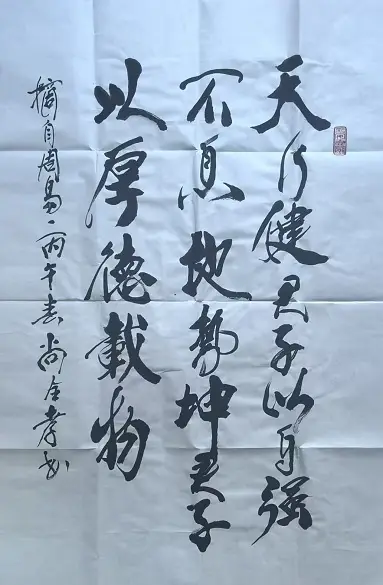 天行健君子以自强
不息地势坤君子
以厚德載物
摘自周易·丙午春尚全孝书